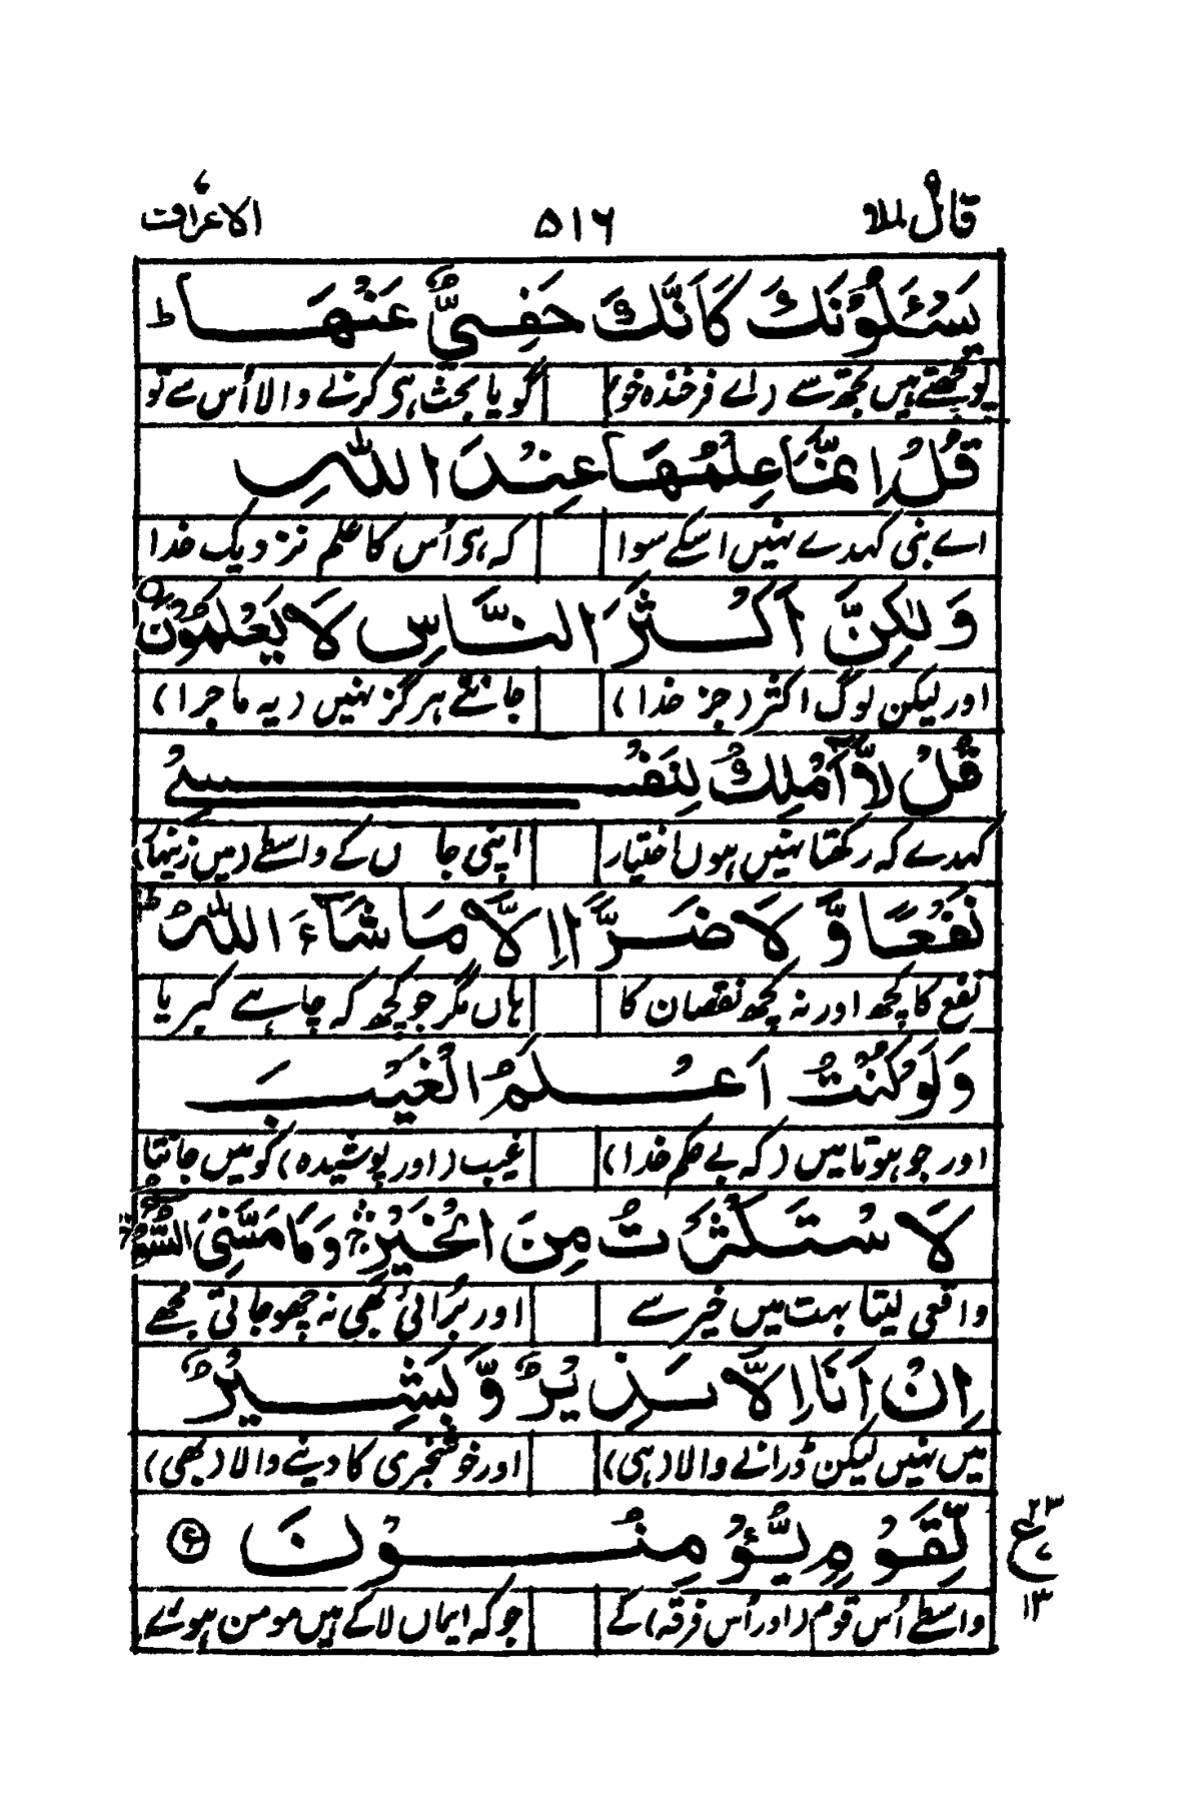 قال الملا ۹ ۵۱۶ الاعراف ۷
يَسْـَٔلُوْنَكَ كَاَنَّكَ حَفِيٌّ عَنْهَا ؕ
پوچھتے ہیں تجھ سے (اے فرخندہ خو) گویا بحث ہی کرنے والا اُس سے تو
قُلْ اِنَّمَا عِلْمُهَا عِنْدَ اللّٰهِ
اے نبی کہدے نہیں اسکے سوا کہ ہی اُس کا علم نزدیک خدا
وَلٰكِنَّ اَكْثَرَ النَّاسِ لَا يَعْلَمُوْنَ ۝
اور لیکن لوگ اکثر (جز خدا) جانتے ہرگز نہیں (یہ ماجرا)
قُلْ لَّاۤ اَمْلِكُ لِنَفْسِيْ
کہدے کہ رکھتا نہیں ہوں اختیار اپنی جاں کے واسطے (میں زنہار)
نَفْعًا وَّ لَا ضَرًّا اِلَّا مَا شَآءَ اللّٰهُ ؕ
نفع کا کچھ اور نہ کچھ نقصان کا ہاں مگر جو کچھ کہ چاہے کبریا
وَلَوْ كُنْتُ اَعْلَمُ الْغَيْبَ
اور جو ہوتا میں (کہ بے حکم خدا) غیب (اور پوشیدہ) کو میں جانتا
لَا سْتَكْثَرْتُ مِنَ الْخَيْرِ ۛۚ وَمَا مَسَّنِيَ السُّوْٓءُ ۛۚ
واقعی لیتا بہت میں خیر سے اور بُرائی بھی نہ چھو جاتی مجھے
اِنْ اَنَا اِلَّا نَذِيْرٌ وَّ بَشِيْرٌ
میں نہیں لیکن ڈرانے والا (ہی) اور خوشخبری کا دینے والا (بھی)
لِّقَوْمٍ يُّؤْمِنُوْنَ ۝ ع ۲۳ ۷ ۱۳
واسطے اُس قوم (اور اُس فرقہ) کے جو کہ ایماں لاکے ہیں مومن ہوئے